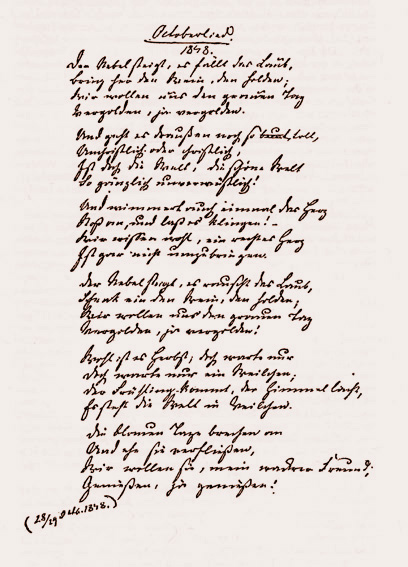 Octoberlied.
1848.
Der Nebel steigt, es fällt das Laub,
bring her den Wein, den holden;
Wir wollen uns den grauen Tag
Vergolden, ja vergolden.
Und geht es draußen noch so toll,
Unchristlich oder christlich,
Ist doch die Welt, die schöne Welt
So gänzlich unverwüstlich!
Und wimmert auch einmal das Herz
Stoß an, und laß es klingen! –
Wir wissen wohl, ein rechtes Herz
Ist gar nicht umzubringen.
Der Nebel steigt, es rauscht das Laub,
Schenk ein den Wein, den holden;
Wir wollen uns den grauen Tag
Vergolden, ja vergolden!
Wohl ist es Herbst; doch warte nur
Doch warte nur ein Weilchen;
Der Frühling kommt, der Himmel lacht,
Es steht die Welt in Veilchen.
Die blauen Tage brechen an
Und ehe sie verfließen,
Wir wollen sie, mein wackrer Freund;
Genießen, ja genießen!
(28/29 Oct. 1848.)